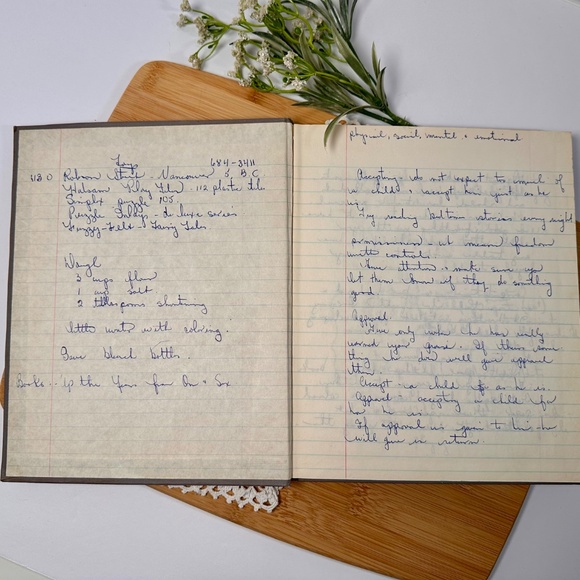 Toys 684-3411
1180 Robson Vancouver 5 B C
Play 112 plastic
Simplex puzzle 105
Puzzle - de luxe series
Fuzzy-Felt - Fairy Tales
3 cups flour
1 cup salt
2 shortening
little water with coloring.
Save bleach bottles.
Books - Up the Years from One to Six
physical, social, mental + emotional
Accepting - do not expect too much of
a child + accept him just as he
is.
Try reading bedtime stories every night
permissiveness - it means freedom
with controls.
Give attention + make sure you
let them know if they do something
good.
Approval
Give only when he has really
earned your If theres some
thing he does well give approval
then.
Accept - a child as he is.
Approval - accepting a child for
how he is.
If approval is given to him he
will give in return